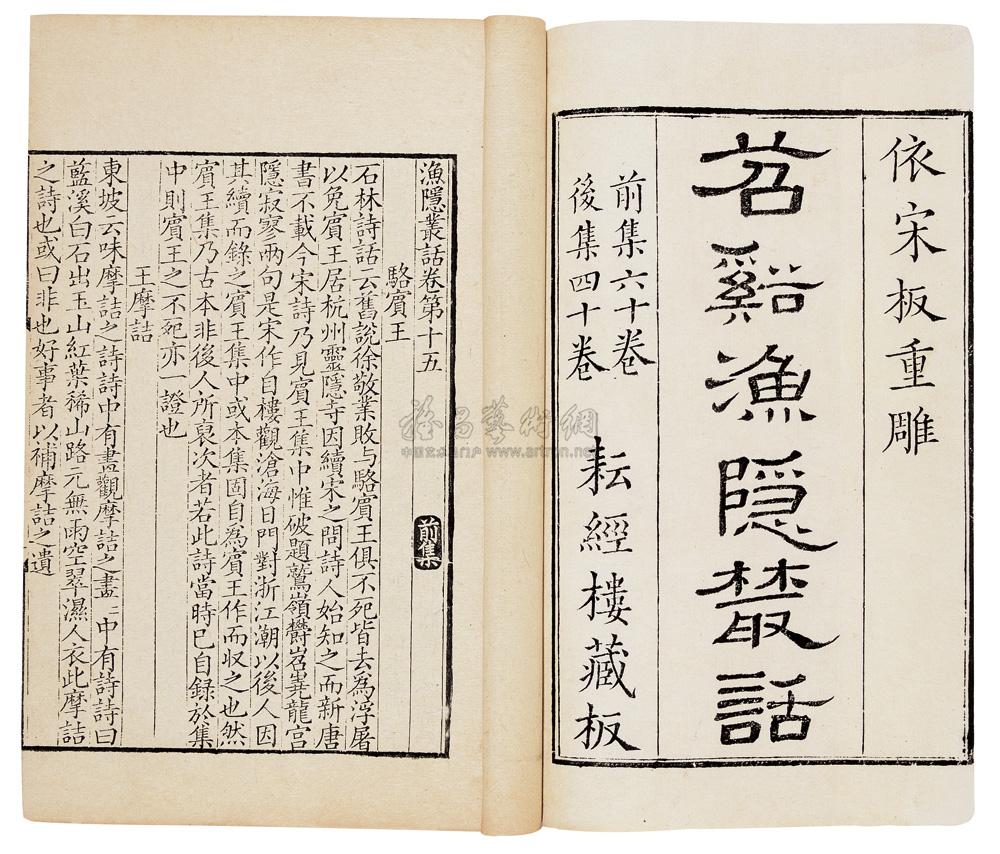 依宋板重雕
苕谿漁隱叢話
前集六十卷
後集四十卷
耘經樓藏板
漁隱叢話卷第十五 前集
駱賓王
石林詩話云舊說徐敬業敗与駱賓王俱不死皆去為浮屠
以免賓王居杭州靈隱寺因續宋之問詩人始知之而新唐
書不載今宋詩乃見賓王集中惟破題鷲嶺欝岧嶤龍宮
隱寂寥兩句是宋作自樓觀滄海日門對浙江潮以後人因
其續而錄之賓王集中或本集固自為賓王作而収之也然
賓王集乃古本非後人所裒次者若此詩當時已自録於集
中則賓王之不死亦一證也
王摩詰
東坡云味摩詰之詩詩中有畫觀摩詰之畫〻中有詩詩曰
藍溪白石出玉山紅葉稀山路元無雨空翠濕人衣此摩詰
之詩也或曰非也好事者以補摩詰之遺
雅昌藝術網
中国艺术品门户 www.artron.net